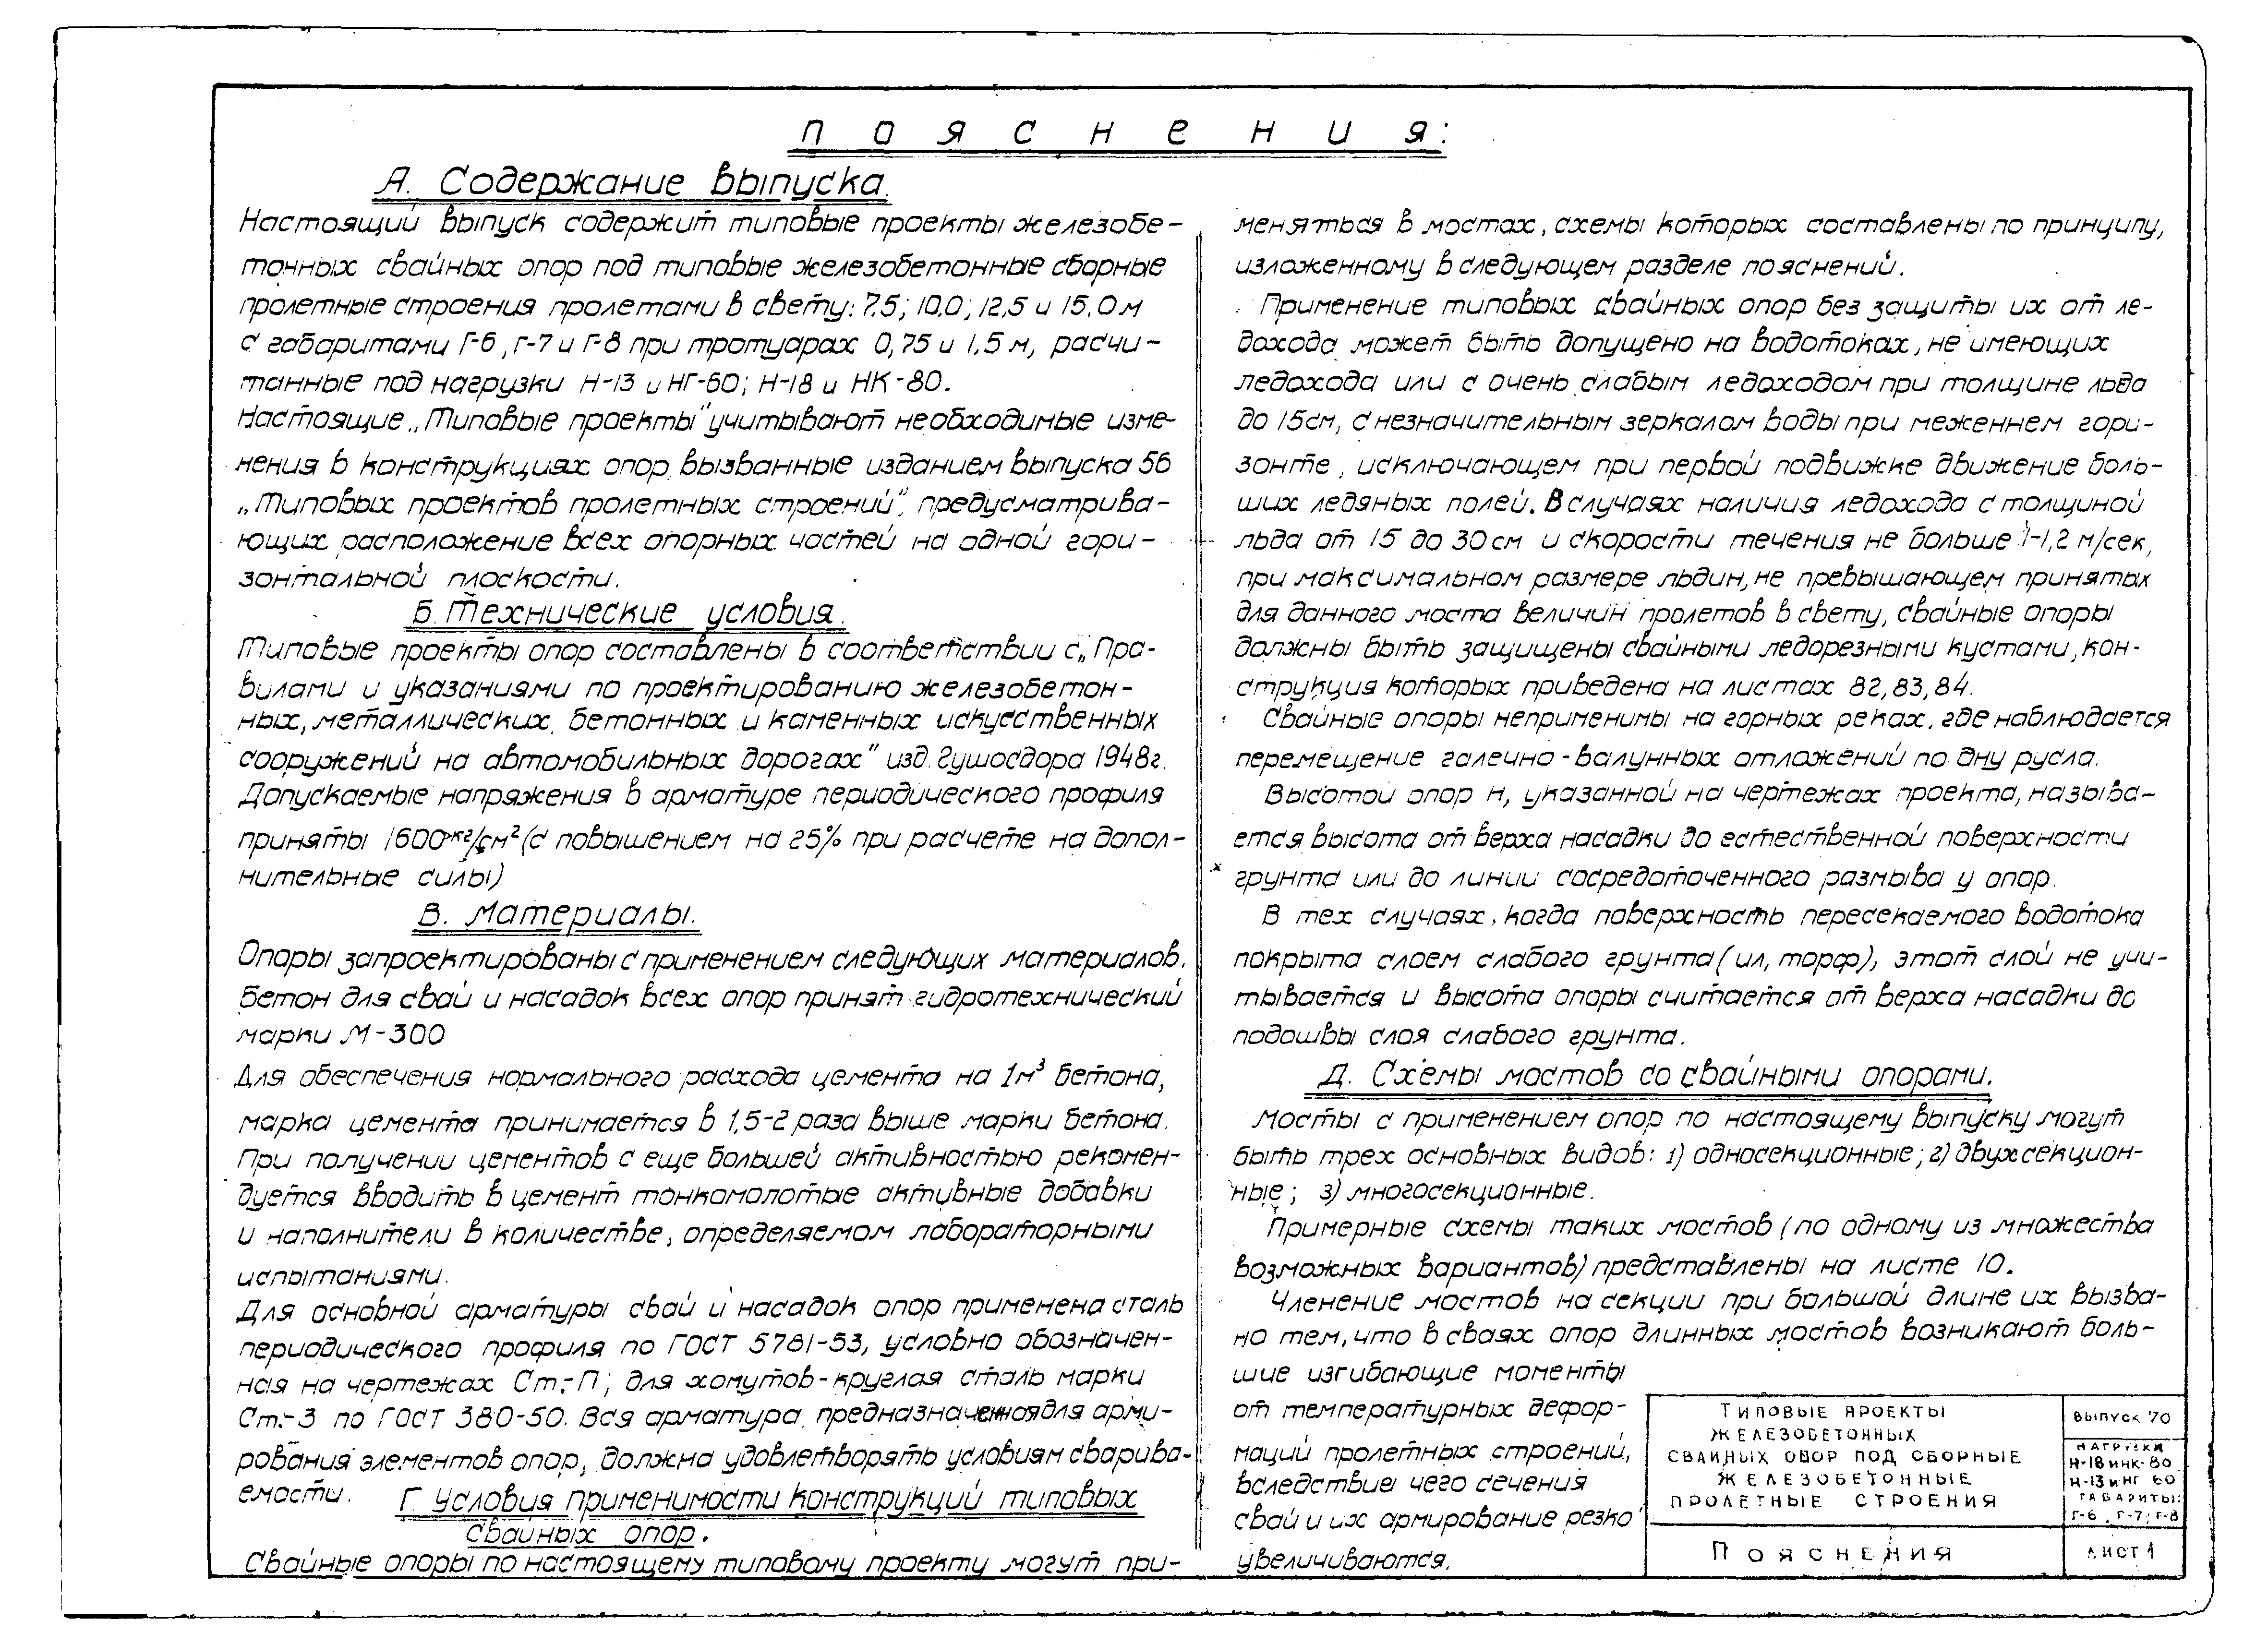 Пояснения:
А. Содержание выпуска.
Настоящий выпуск содержит типовые проекты железобе-
тонных свайных опор под типовые железобетонные сборные
пролетные строения пролетами в свету: 7.5; 10,0; 12,5 и 15,0 м
с габаритами Г-6, Г-7 и Г-8 при тротуарах 0,75 и 1.5 м, расчи-
танные под нагрузки Н-13 и НГ-60; Н-18 и НК-80.
Настоящие „Типовые проекты" учитывают необходимые изме-
нения в конструкциях опор, вызванные изданием выпуска 56
„Типовых проектов пролетных строений", предусматрива-
ющих расположение всех опорных частей на одной гори-
зонтальной плоскости.
Б. Технические условия.
Типовые проекты опор составлены в соответствии с „Пра-
вилами и указаниями по проектированию железобетон-
ных, металлических, бетонных и каменных искусственных
сооружений на автомобильных дорогах" изд. Гушосдора 1948г.
Допускаемые напряжения в арматуре периодического профиля
приняты 1600 кг/см² (с повышением на 25% при расчете на допол-
нительные силы)
В. Материалы.
Опоры запроектированы с применением следующих материалов.
Бетон для свай и насадок всех опор принят гидротехнический
марки М-300
Для обеспечения нормального расхода цемента на 1м³ бетона,
марка цемента принимается в 1,5-2 раза выше марки бетона.
При получении цементов с еще большей активностью рекомен-
дуется вводить в цемент тонкомолотые активные добавки
и наполнители в количестве, определяемом лабораторными
испытаниями.
Для основной арматуры свай и насадок опор применена сталь
периодического профиля по ГОСТ 5781-53, условно обозначен-
ная на чертежах Ст.-П; для хомутов-круглая сталь марки
Ст.-3 по ГОСТ 380-50. Вся арматура, предназначенная для арми-
рования элементов опор, должна удовлетворять условиям сварива-
емости.
Г. Условия применимости конструкций типовых
свайных опор.
Свайные опоры по настоящему типовому проекту могут при-
меняться в мостах, схемы которых составлены по принципу,
изложенному в следующем разделе пояснений.
Применение типовых свайных опор без защиты их от ле-
дохода может быть допущено на водотоках, не имеющих
ледохода или с очень слабым ледоходом при толщине льда
до 15см, с незначительным зеркалом воды при меженнем гори-
зонте, исключающем при первой подвижке движение боль-
ших ледяных полей. В случаях наличия ледохода с толщиной
льда от 15 до 30 см и скорости течения не больше 1-1,2 м/сек,
при максимальном размере льдин, не превышающем принятых
для данного моста величин пролетов в свету, свайные опоры
должны быть защищены свайными ледорезными кустами, кон-
струкция которых приведена на листах 82, 83, 84.
Свайные опоры неприменимы на горных реках, где наблюдается
перемещение галечно-валунных отложений по дну русла.
Высотой опор Н, указанной на чертежах проекта, называ-
ется высота от верха насадки до естественной поверхности
грунта или до линии сосредоточенного размыва у опор.
В тех случаях, когда поверхность пересекаемого водотока
покрыта слоем слабого грунта (ил, торф), этот слой не учи-
тывается и высота опоры считается от верха насадки до
подошвы слоя слабого грунта.
Д. Схемы мостов со свайными опорами.
Мосты с применением опор по настоящему выпуску могут
быть трех основных видов: 1) односекционные; 2) двухсекцион-
ные; 3) многосекционные.
Примерные схемы таких мостов (по одному из множества
возможных вариантов) представлены на листе 10.
Членение мостов на секции при большой длине их вызва-
но тем, что в сваях опор длинных мостов возникают боль-
шие изгибающие моменты
от температурных дефор-
маций пролетных строений,
вследствие чего сечения
свай и их армирование резко
увеличиваются.
Типовые проекты
железобетонных
свайных опор под сборные
железобетонные
пролетные строения
Выпуск 70
Нагрузки
Н-18 и НК-80
Н-13 и НГ 60
Габариты:
Г-6, Г-7; Г-8
Пояснения
Лист 1